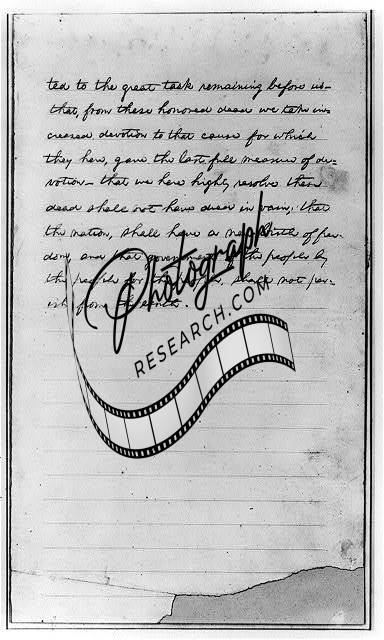 ted to the great task remaining before us—
that, from these honored dead we take in=
creased devotion to that cause for which
they here, gave the last full measure of de=
votion— that we here highly resolve these
dead shall not have died in vain; that
the nation, shall have a new birth of free
dom, and that government of the people by
the people for the people, shall not per=
ish from the earth.
Photograph
RESEARCH.COM